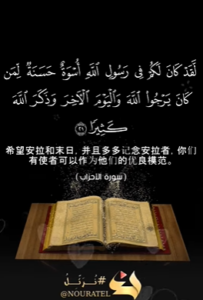 لَّقَدْ كَانَ لَكُمْ فِى رَسُولِ ٱللَّهِ أُسْوَةٌ حَسَنَةٌ لِّمَن
كَانَ يَرْجُوا۟ ٱللَّهَ وَٱلْيَوْمَ ٱلْـَٔاخِرَ وَذَكَرَ ٱللَّهَ
كَثِيرًا ٢١
希望安拉和末日，并且多多记念安拉者，你们
有使者可以作为他们的优良模范。
(سورة الأحزاب)
#نُرَتِّل
@NOURATEL